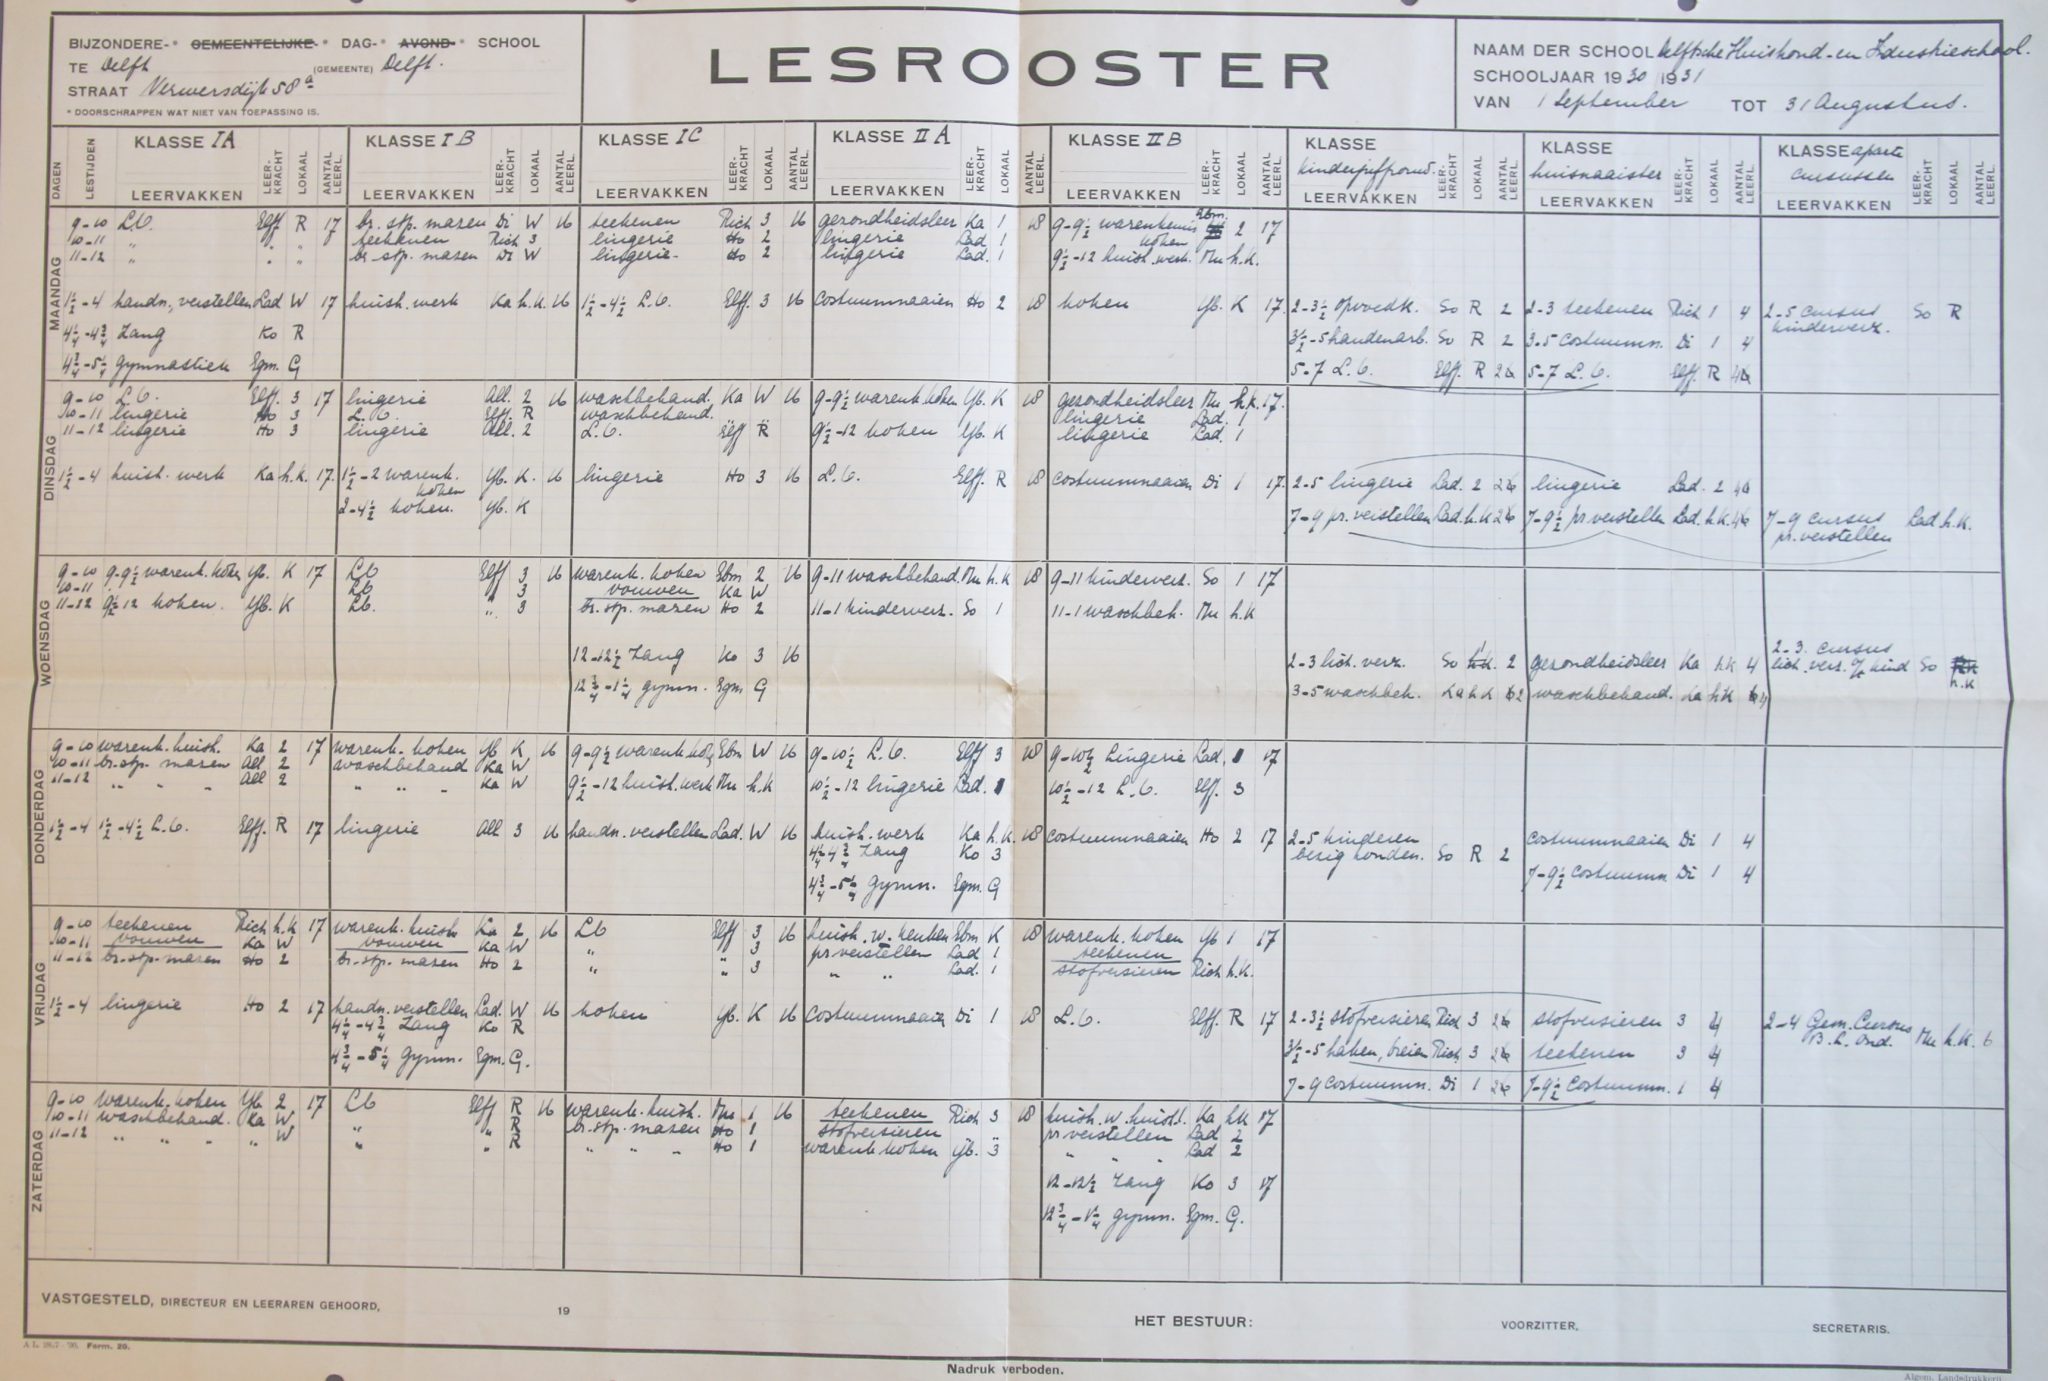 BIJZONDERE-* GEMEENTELIJKE-* DAG-* AVOND-* SCHOOL
TE Delft (GEMEENTE) Delft.
STRAAT Verwersdijk 58a
* DOORSCHRAPPEN WAT NIET VAN TOEPASSING IS.
LESROOSTER
NAAM DER SCHOOL Delftsche Huishoud- en Industrieschool.
SCHOOLJAAR 1930/1931
VAN 1 September TOT 31 Augustus.
DAGEN LESTIJDEN KLASSE IA LEERVAKKEN LEERKRACHT LOKAAL AANTAL LEERL.
KLASSE I B LEERVAKKEN LEERKRACHT LOKAAL AANTAL LEERL.
KLASSE IC LEERVAKKEN LEERKRACHT LOKAAL AANTAL LEERL.
KLASSE II A LEERVAKKEN LEERKRACHT LOKAAL AANTAL LEERL.
KLASSE II B LEERVAKKEN LEERKRACHT LOKAAL AANTAL LEERL.
KLASSE kinderjuffrouw. LEERVAKKEN LEERKRACHT LOKAAL AANTAL LEERL.
KLASSE huisnaaister LEERVAKKEN LEERKRACHT LOKAAL AANTAL LEERL.
KLASSE aparte cursussen LEERVAKKEN LEERKRACHT LOKAAL AANTAL LEERL.
MAANDAG
9-10 L.O. Elff R 17 br. stp. mazen Di W 16 teekenen Rich 3 16 gezondheidsleer Ka 1 18 9-9½ warenkennis koken Ebm. 2 17
10-11 " teekenen Rich 3 lingerie Ho 2 lingerie Lad 1
11-12 " " " br. stp. mazen Di W lingerie Ho 2 lingerie Lad. 1 9½-12 huish. werk. Mu h.K.
1½-4 handn., verstellen Lad W 17 huish. werk Ka h.k. 16 1½-4½ L.O. Elff. 3 16 costuumnaaien Ho 2 18 koken Yb. K 17. 2-3½ opvoedk. So R 2 2-3 teekenen Rich 1 4 2-5 cursus kinderverz. So R
4¼-4¾ Zang Ko R 3½-5 handenarb. So R 2 3-5 costuumn. Di 1 4
4¾-5¼ gymnastiek Egm. G 5-7 L.O. Elff. R 5-7 L.O. Elff. R
DINSDAG
9-10 L.O. Elff. 3 17 lingerie All. 2 16 waschbehand. Ka W 16 9-9½ warenk. koken Yb. K 18 gezondheidsleer Mu h.k. 17.
10-11 lingerie Ho 3 L.O. Elff. R waschbehand. " " lingerie Lad. 1
11-12 lingerie Ho 3 lingerie All. 2 L.O. Elff R 9½-12 koken Yb. K lingerie Lad. 1
1½-4 huish. werk Ka h.k. 17. 1½-2 warenk. koken Yb. K. 16 lingerie Ho 3 16 L.O. Elff. R 18 costuumnaaien Di 1 17. 2-5 lingerie Lad. 2 lingerie Lad. 2
2-4½ koken. Yb. K 7-9 pr. verstellen Lad. h.K 7-9½ pr. verstellen Lad. h.K. 7-9 cursus pr. verstellen Lad h.K.
WOENSDAG
9-10 9-9½ warenk. koken Yb. K 17 LO Elff 3 16 warenk. koken Ebm 2 16 9-11 waschbehand. Mu h.K 18 9-11 kinderverz. So 1 17
10-11 LO " 3 vouwen Ka W
11-12 9½-12 koken. Yb. K LO. " 3 br. stp. mazen Ho 2 11-1 kinderverz. So 1 11-1 waschbeh. Mu h.K
12-12½ Zang Ko 3 16 2-3 lich. verz. So 2 gezondheidsleer Ka h.K 4 2-3. cursus lich. verz. v/h kind So h.K
12¾-1¼ gymn. Egm G 3-5 waschbeh. Ka h.K 2 waschbehand. Ka h.K 4
DONDERDAG
9-10 warenk. huish. Ka 2 17 warenk. koken Yb K 16 9-9½ warenk. kok. Ebm W 16 9-10½ L.O. Elff 3 18 9-10½ Lingerie Lad. 1 17
10-11 br. stp. mazen All 2 waschbehand Ka W
11-12 " " " All 2 " " " Ka W 9½-12 huish. werk Mu h.K 10½-12 lingerie Lad. 1 10½-12 L.O. Elff. 3
1½-4 1½-4½ L.O. Elff. R 17 lingerie All 3 16 handn. verstellen Lad. W 16 huish. werk Ka h.K. 18 costuumnaaien Ho 2 17 2-5 kinderen bezig houden. So R 2 costuumnaaien Di 1 4
4¼-4¾ Zang Ko 3
4¾-5¼ gymn. Egm. G 7-9½ costuumn Di 1 4
VRIJDAG
9-10 teekenen Rich h.K 17 warenk. huish Ka 2 16 LO Elff 3 16 huish. w. keuken Ebm K 18 warenk. koken Yb 1 17
10-11 vouwen Ka W vouwen Ka W " " 3 pr verstellen Lad 1 teekenen
11-12 br. stp. mazen Ho 2 br. stp. mazen Ho 2 " " 3 " " Lad. 1 stofversieren Rich h.K.
1½-4 lingerie Ho 2 17 handn. verstellen Lad. W 16 koken Yb. K 16 costuumnaaien Di 1 18 L.O. Elff. R 17 2-3½ stofversieren Rich 3 stofversieren 3 4 2-4 Gem. Cursus B. L. Ond. Mu h.K. 6
4¼-4¾ Zang Ko R 3½-5 haken, breien Rich 3 teekenen 3 4
4¾-5¼ gymn. Egm. G. 7-9 costuumn. Di 1 7-9½ costuumn. 1 4
ZATERDAG
9-10 warenk. koken Yb 2 17 LO Elff R 16 warenk. huish. Mu 1 16 teekenen Rich 3 18 huish. w. huish. Ka h.K 17
10-11 waschbehand. Ka W " " R br. stp. mazen Ho 1 stofversieren " " pr verstellen Lad 2
11-12 " " " " W " " R " " " Ho 1 warenk. koken Yb. 3 " " Lad 2
12-12½ Zang Ko 3 17
12¾-1¼ gymn. Egm. G.
VASTGESTELD, DIRECTEUR EN LEERAREN GEHOORD, 19
HET BESTUUR: VOORZITTER, SECRETARIS.
Form. 20.
Nadruk verboden.
Algem. Landsdrukkerij